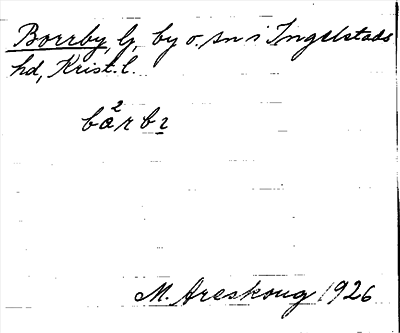 Borrby, G, by o. sn i Ingelstads
hd, Krist. l.
M. Areskoug 1926